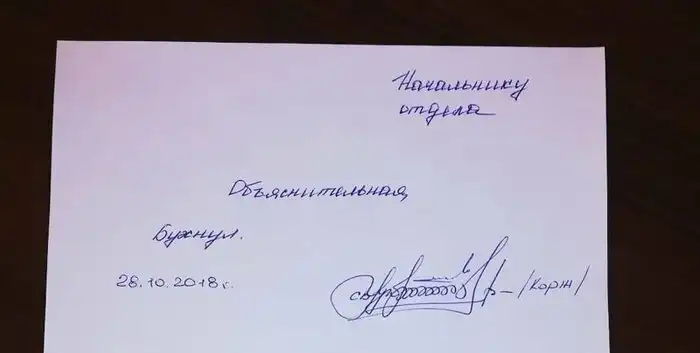 Начальнику
отдела
Объяснительная
Бухнул.
28.10.2018г.
/Корж/